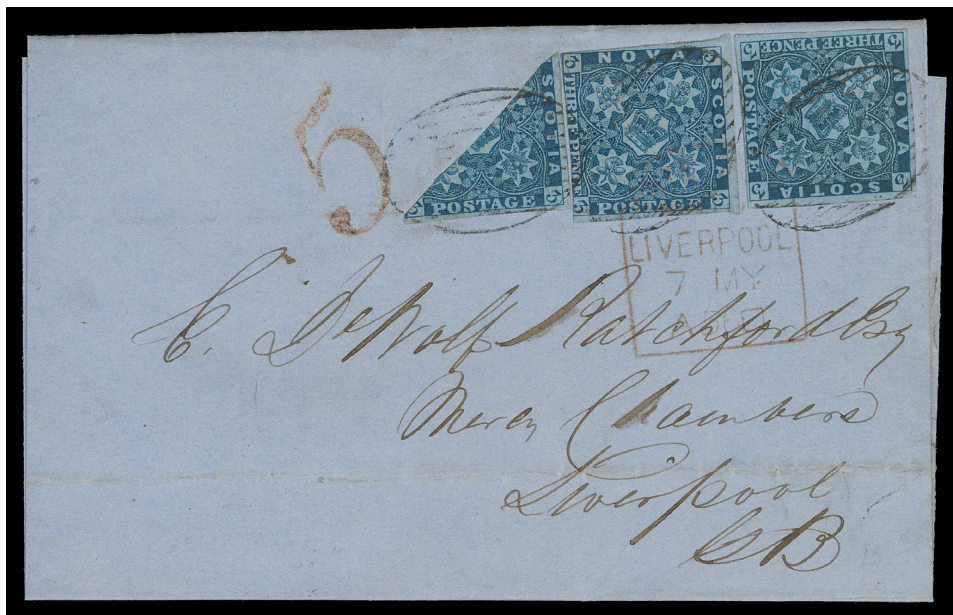 5
SCOTIA
POSTAGE
NOVA
SCOTIA
THREE PENCE
POSTAGE
THREE PENCE
NOVA
SCOTIA
POSTAGE
LIVERPOOL
7 MY
C. DeWolf Ratchford Esq
Chambers
Liverpool
GB